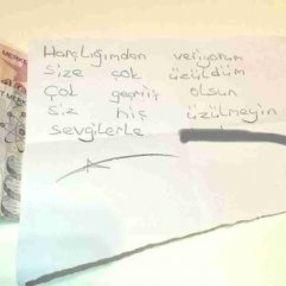 MERKE
7 MERK
Harçlığımdan veriyorum
Size çok üzüldüm
Çok geçmiş olsun
Siz hiç üzülmeyin
sevgilerle